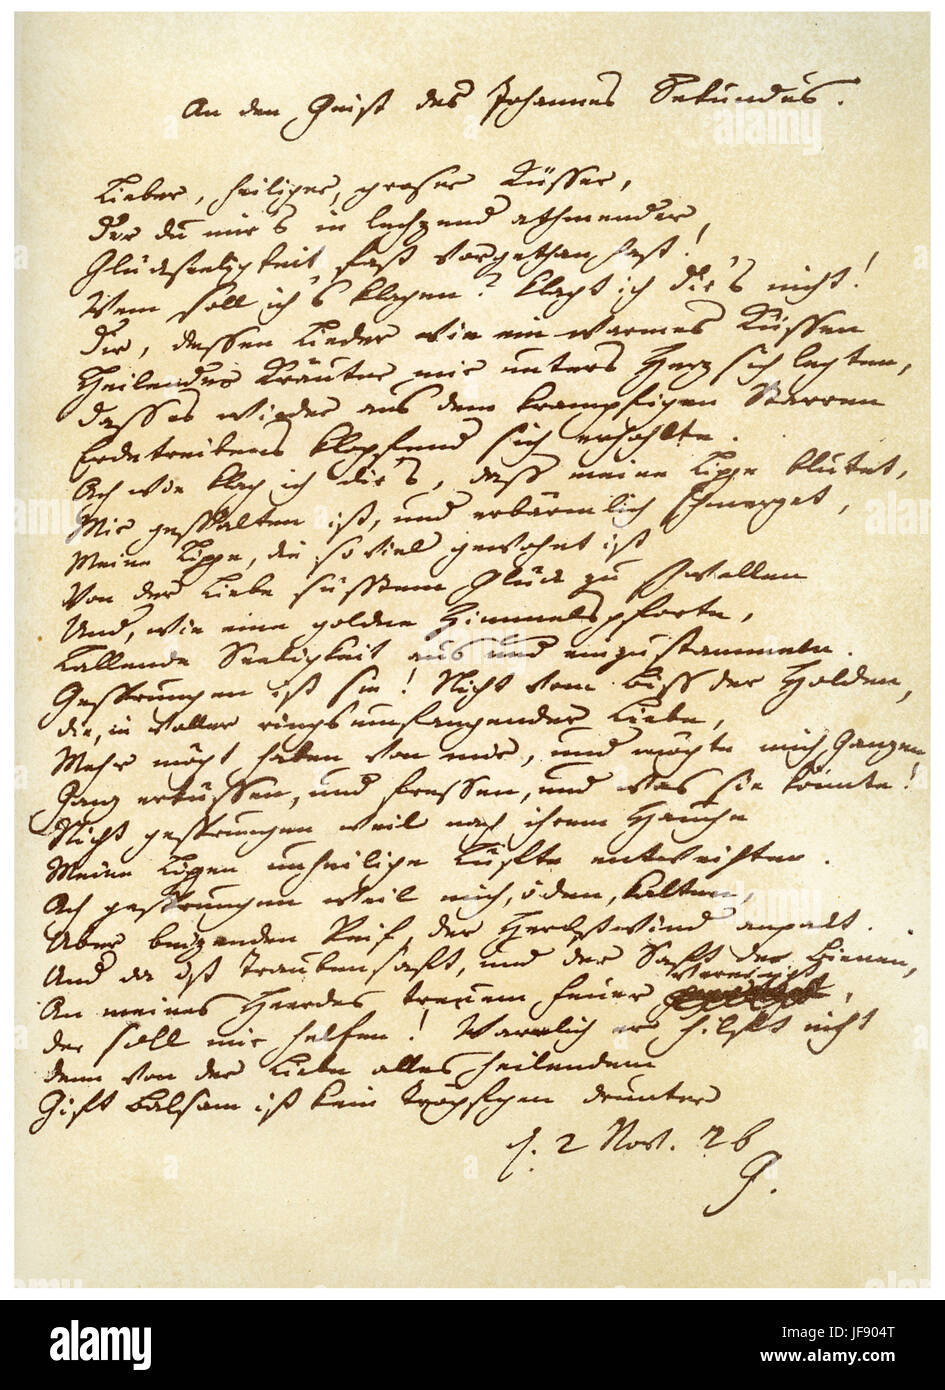 An den Geist des Johannes Sekundus.
Lieber, heiliger, groser Küsser,
Der du mir's in lechzend athmender
Glückseeligkeit fast vorgethan hast!
Wem soll ich's klagen? klagt ich dir's nicht!
Dir, dessen Lieder wie ein warmes Küssen
Heilender Kräuter mir unters Herz sich legten,
Dass es wieder aus dem krampfigen Starren
Erdetreibens klopfend sich erhohlte.
Ach wie klag ich dir's, dass meine Lippe blutet,
Mir gespalten ist, und erbärmlich schmerzet,
Meine Lippe, die so viel gewohnt ist
Von der Liebe süsstem Glück zu schwellen
Und, wie eine goldne Himmelspforte,
Lallende Seeligkeit aus und einzustammeln.
Gesprungen ist sie! Nicht vom Biss der Holden,
Die, in voller ringsumfangender Liebe,
Mehr mögt haben von mir, und mögte mich Ganzen
Ganz erküssen, und fressen, und was sie könnte!
Nicht gesprungen weil nach ihrem Hauche
Meine Lippen unheilige Lüfte entweihten.
Ach gesprungen weil mich, öden, kalten,
Über beizenden Reif, der Herbstwind anpakt.
Und da ist Traubensaft, und der Saft der Bienen,
An meines Heerdes treuem Feuer vereinigt,
Der soll mir helfen! Warrlich er hilft nicht
Denn von der Liebe alles heilendem
Gift Balsam ist kein Tröpfgen drunter
d. 2 Nov. 76
G.
alamy
alamy stock photo
JF904T
www.alamy.com